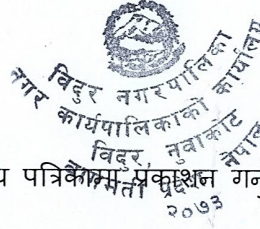 विदुर नगरपालिका
नगर कार्यपालिकाको कार्यालय
विदुर, नुवाकोट
नेपाल
२०७३
पत्रिकामा प्रकाशन